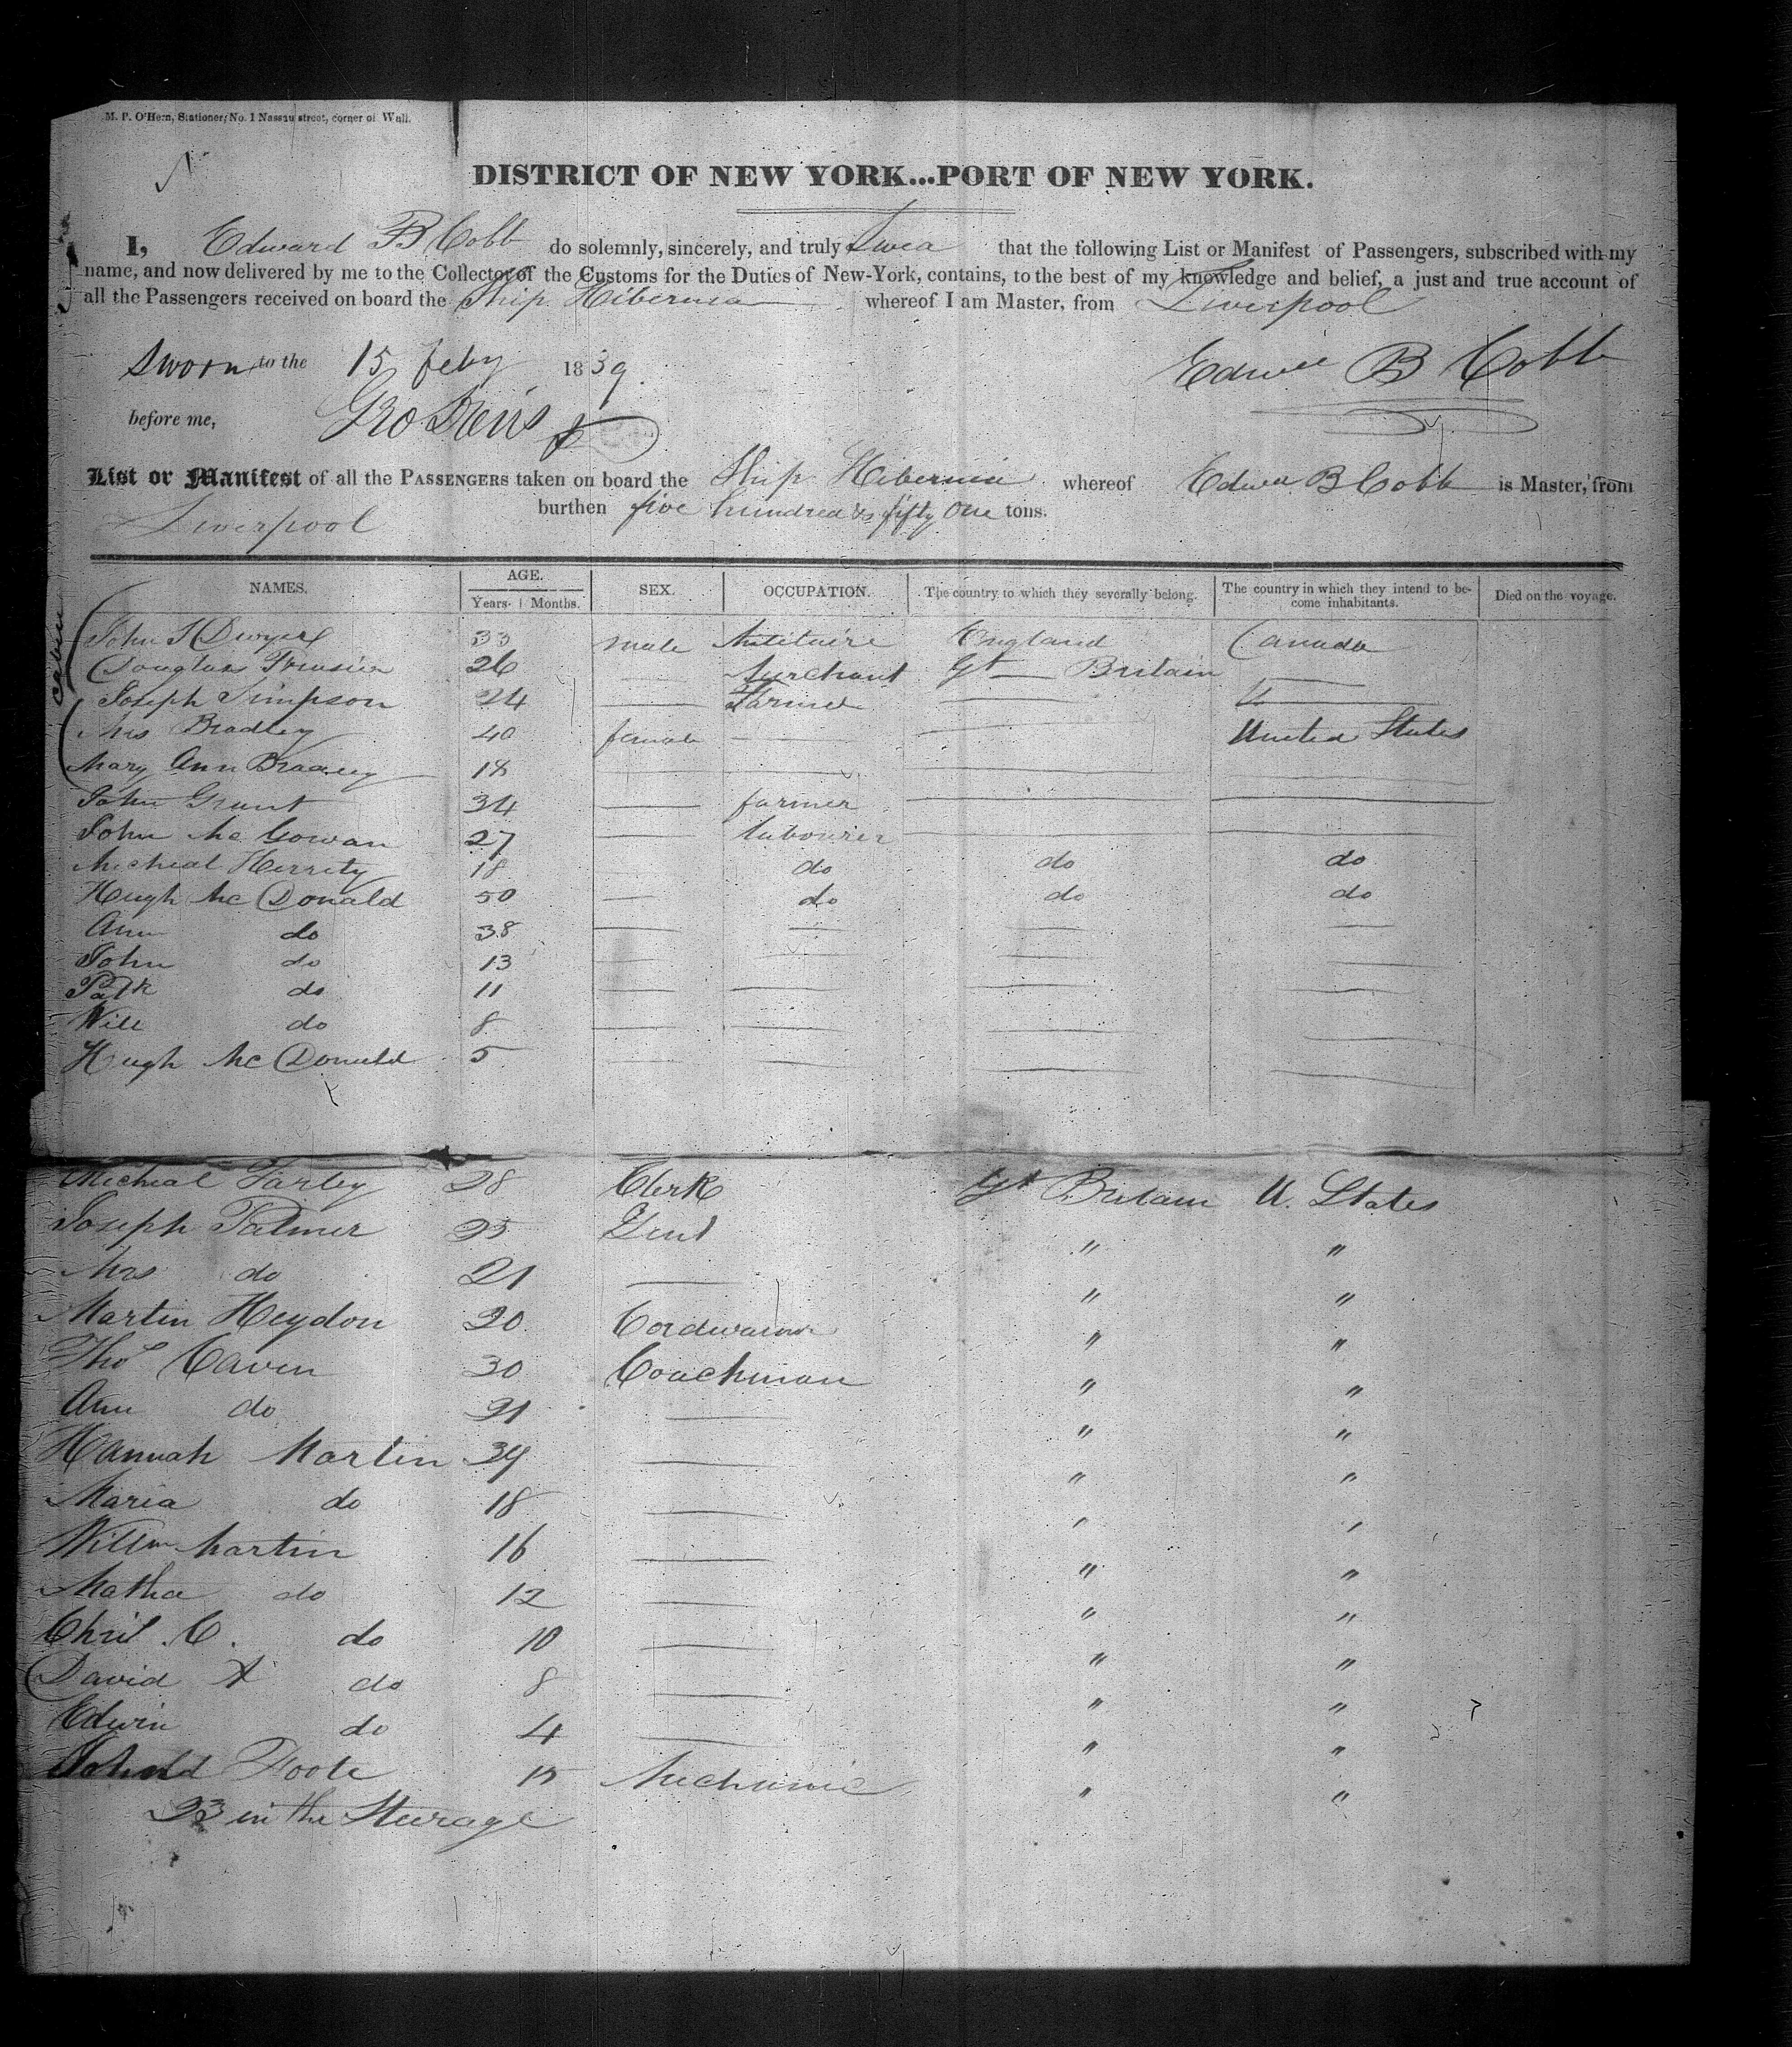 M. P. O'Hern, Stationer, No. 1 Nassau street, corner of Wall.
DISTRICT OF NEW YORK...PORT OF NEW YORK.
I, Edward B Cobb do solemnly, sincerely, and truly Swea that the following List or Manifest of Passengers, subscribed with my
name, and now delivered by me to the Collector of the Customs for the Duties of New-York, contains, to the best of my knowledge and belief, a just and true account of
all the Passengers received on board the Ship Hibernia whereof I am Master, from Liverpool
Sworn to the 15 Feby 1839
Edwd B Cobb
before me,
List or Manifest of all the PASSENGERS taken on board the Ship Hibernia whereof Edwd B Cobb is Master, from
Liverpool burthen five hundred & fifty One tons.
NAMES. AGE. Years. Months. SEX. OCCUPATION. The country to which they severally belong. The country in which they intend to become inhabitants. Died on the voyage.
cabin
John J Dwyer 33 male England Canada
Douglas 26 Merchant Gt Britain
Joseph Simpson 24 Farmer
Mrs Bradley 40 female United States
Mary Ann Bradley 18
John Grant 34 farmer
John Mc Gowan 27 labourer
Micheal Herrity 18 do do do
Hugh Mc Donald 50 do do do
Ann do 38
John do 13
Patk do 11
Will do 8
Hugh Mc Donald 5
Micheal Farley 28 Clerk Gt Britain U. States
Joseph Palmer 25 Gent " "
Mrs do 21 " "
Martin Heydon 20 Cordwainer " "
Thos Caven 30 Coachman " "
Ann do 21 " "
Hannah Martin 39 " "
Maria do 18 " "
Willm Martin 16 " "
Matha do 12 " "
Chril. C. do 10 " "
David A do 8 " "
Edwin do 4 " "
Foote 15 Mechanic " "
23 in the Steerage